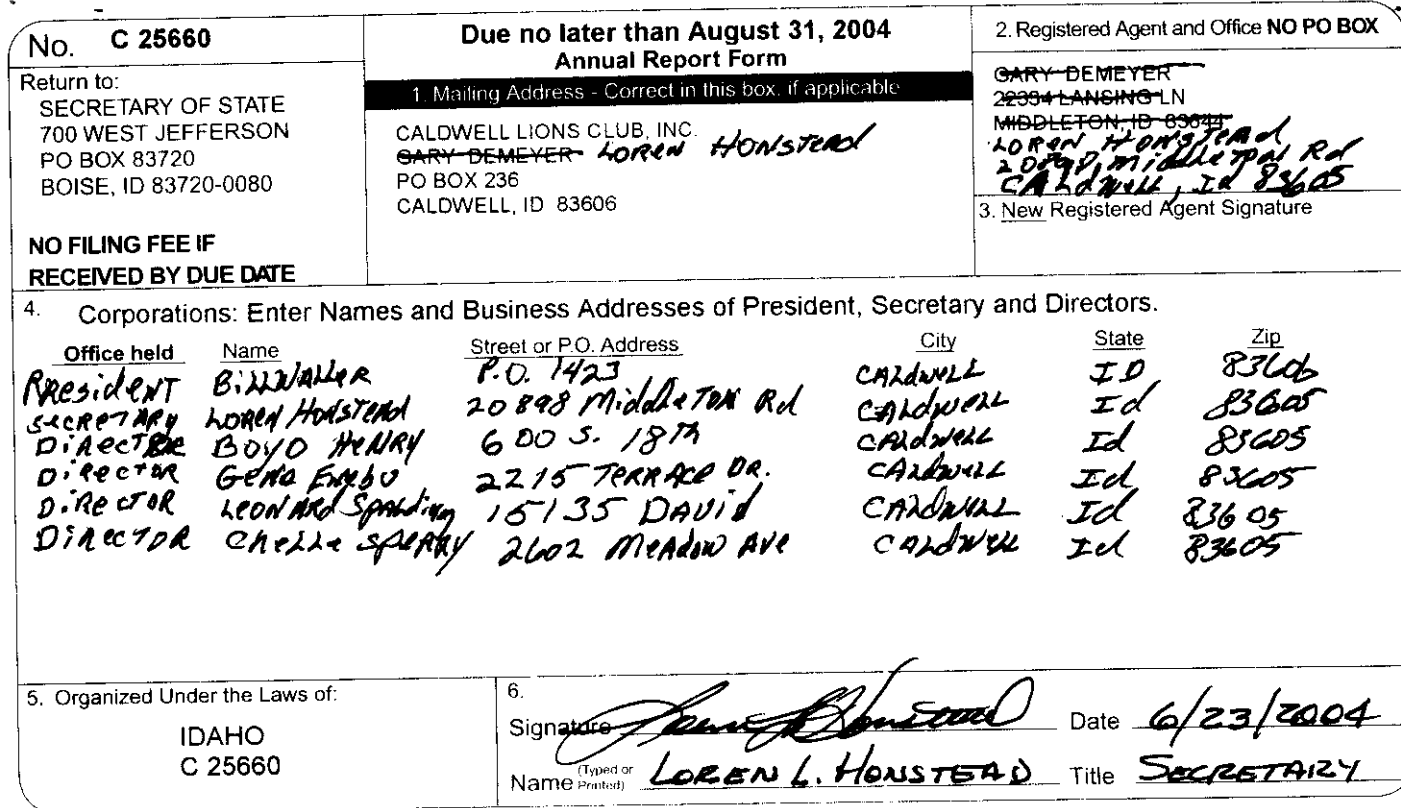 No. C 25660
Due no later than August 31, 2004
Annual Report Form
2. Registered Agent and Office NO PO BOX
Return to:
SECRETARY OF STATE
700 WEST JEFFERSON
PO BOX 83720
BOISE, ID 83720-0080
NO FILING FEE IF
RECEIVED BY DUE DATE
1. Mailing Address - Correct in this box, if applicable
CALDWELL LIONS CLUB, INC.
GARY DEMEYER LOREN HONSTEAD
PO BOX 236
CALDWELL, ID 83606
GARY DEMEYER
22394 LANSING LN
MIDDLETON, ID 83644
LOREN HONSTEAD
20898 Middleton Rd
CALdwell, Id 83605
3. New Registered Agent Signature
4. Corporations: Enter Names and Business Addresses of President, Secretary and Directors.
Office held Name Street or P.O. Address City State Zip
PResideNT Bill WALLeR P.O. 1423 CALdwELL ID 83606
SecReTARy LoReN HonsTeAd 20898 MiddleToN Rd CALdwELL Id 83605
DiRecToR BOYD HeNRY 600 S. 18Th CALdwELL Id 83605
DiRecToR 2215 TeRRAce DR. CALdwELL Id 83605
DiRecToR LeoNARd SpALding 15135 DAvid CALdwELL Id 83605
DiRecToR CheLLe SpeRRY 2602 MeAdow Ave CALdwELL Id 83605
5. Organized Under the Laws of:
IDAHO
C 25660
6.
Signature Loren L Honstead Date 6/23/2004
Name (Typed or Printed) LOREN L. HONSTEAD Title SECRETARY